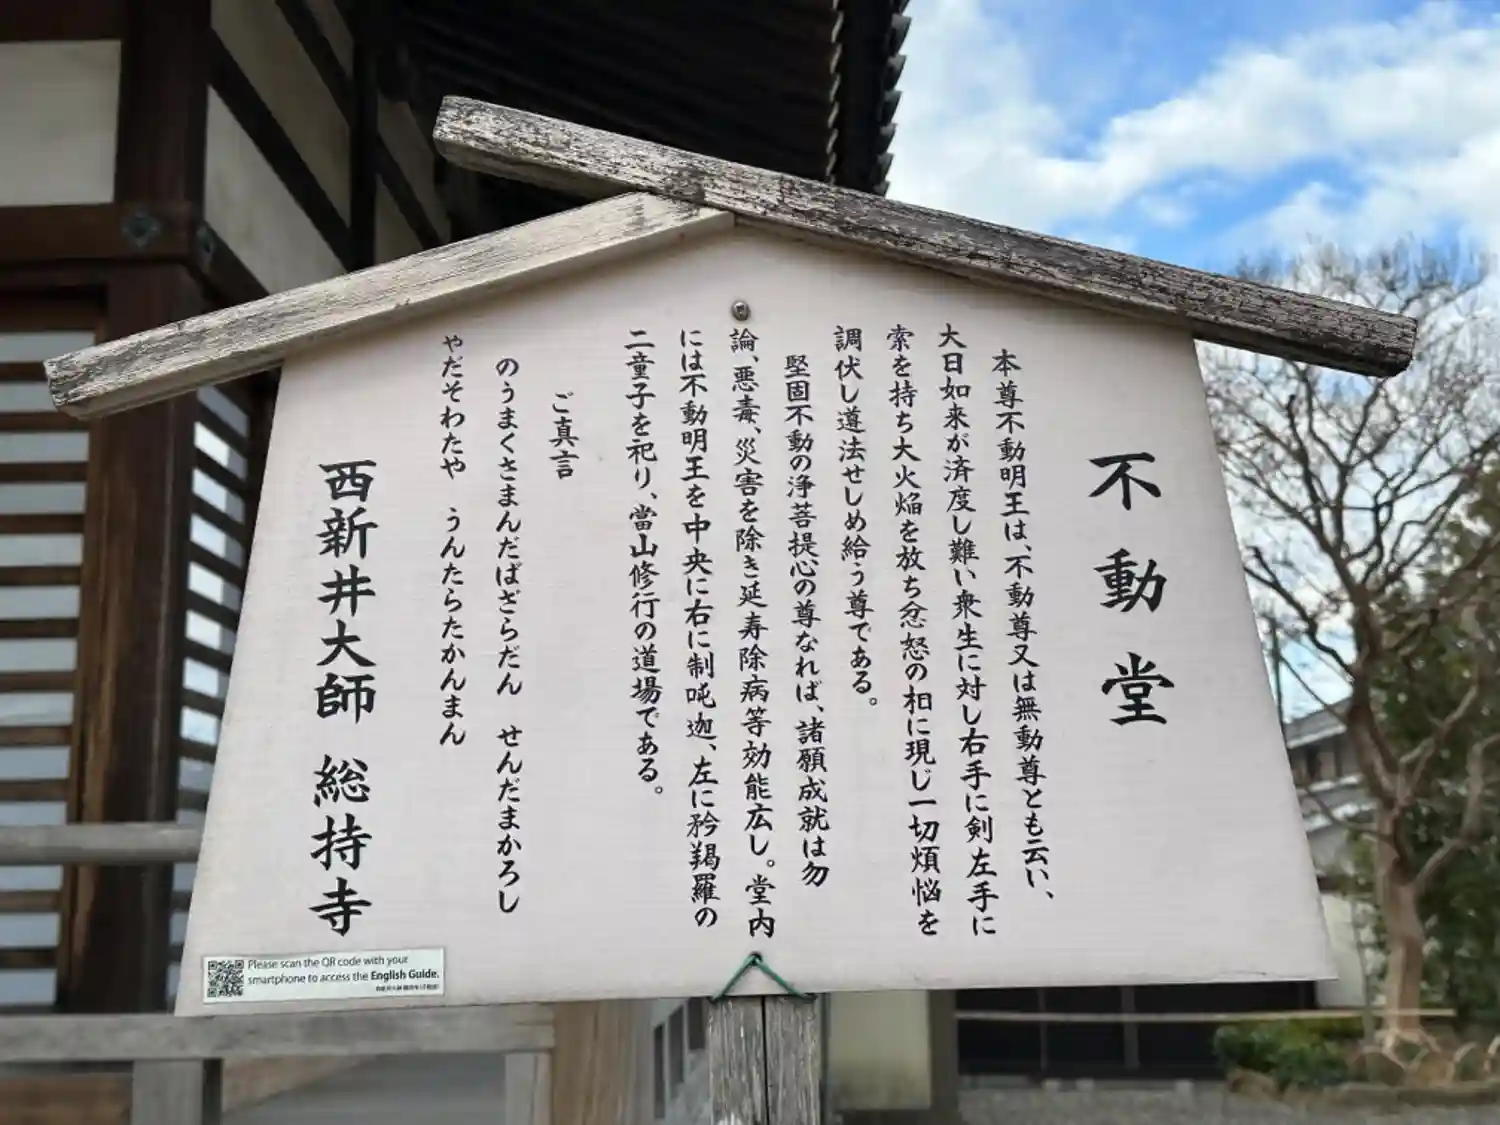 不動堂
本尊不動明王は、不動尊又は無動尊とも云い、
大日如来が済度し難い衆生に対し右手に剣左手に
索を持ち大火焔を放ち忿怒の相に現じ一切煩悩を
調伏し遵法せしめ給う尊である。
堅固不動の浄菩提心の尊なれば、諸願成就は勿
論、悪毒、災害を除き延寿除病等効能広し。堂内
には不動明王を中央に右に制吒迦、左に矜羯羅の
二童子を祀り、當山修行の道場である。
ご真言
のうまくさまんだばざらだん せんだまかろし
やだそわたや うんたらたかんまん
西新井大師 総持寺
Please scan the QR code with your
smartphone to access the English Guide.